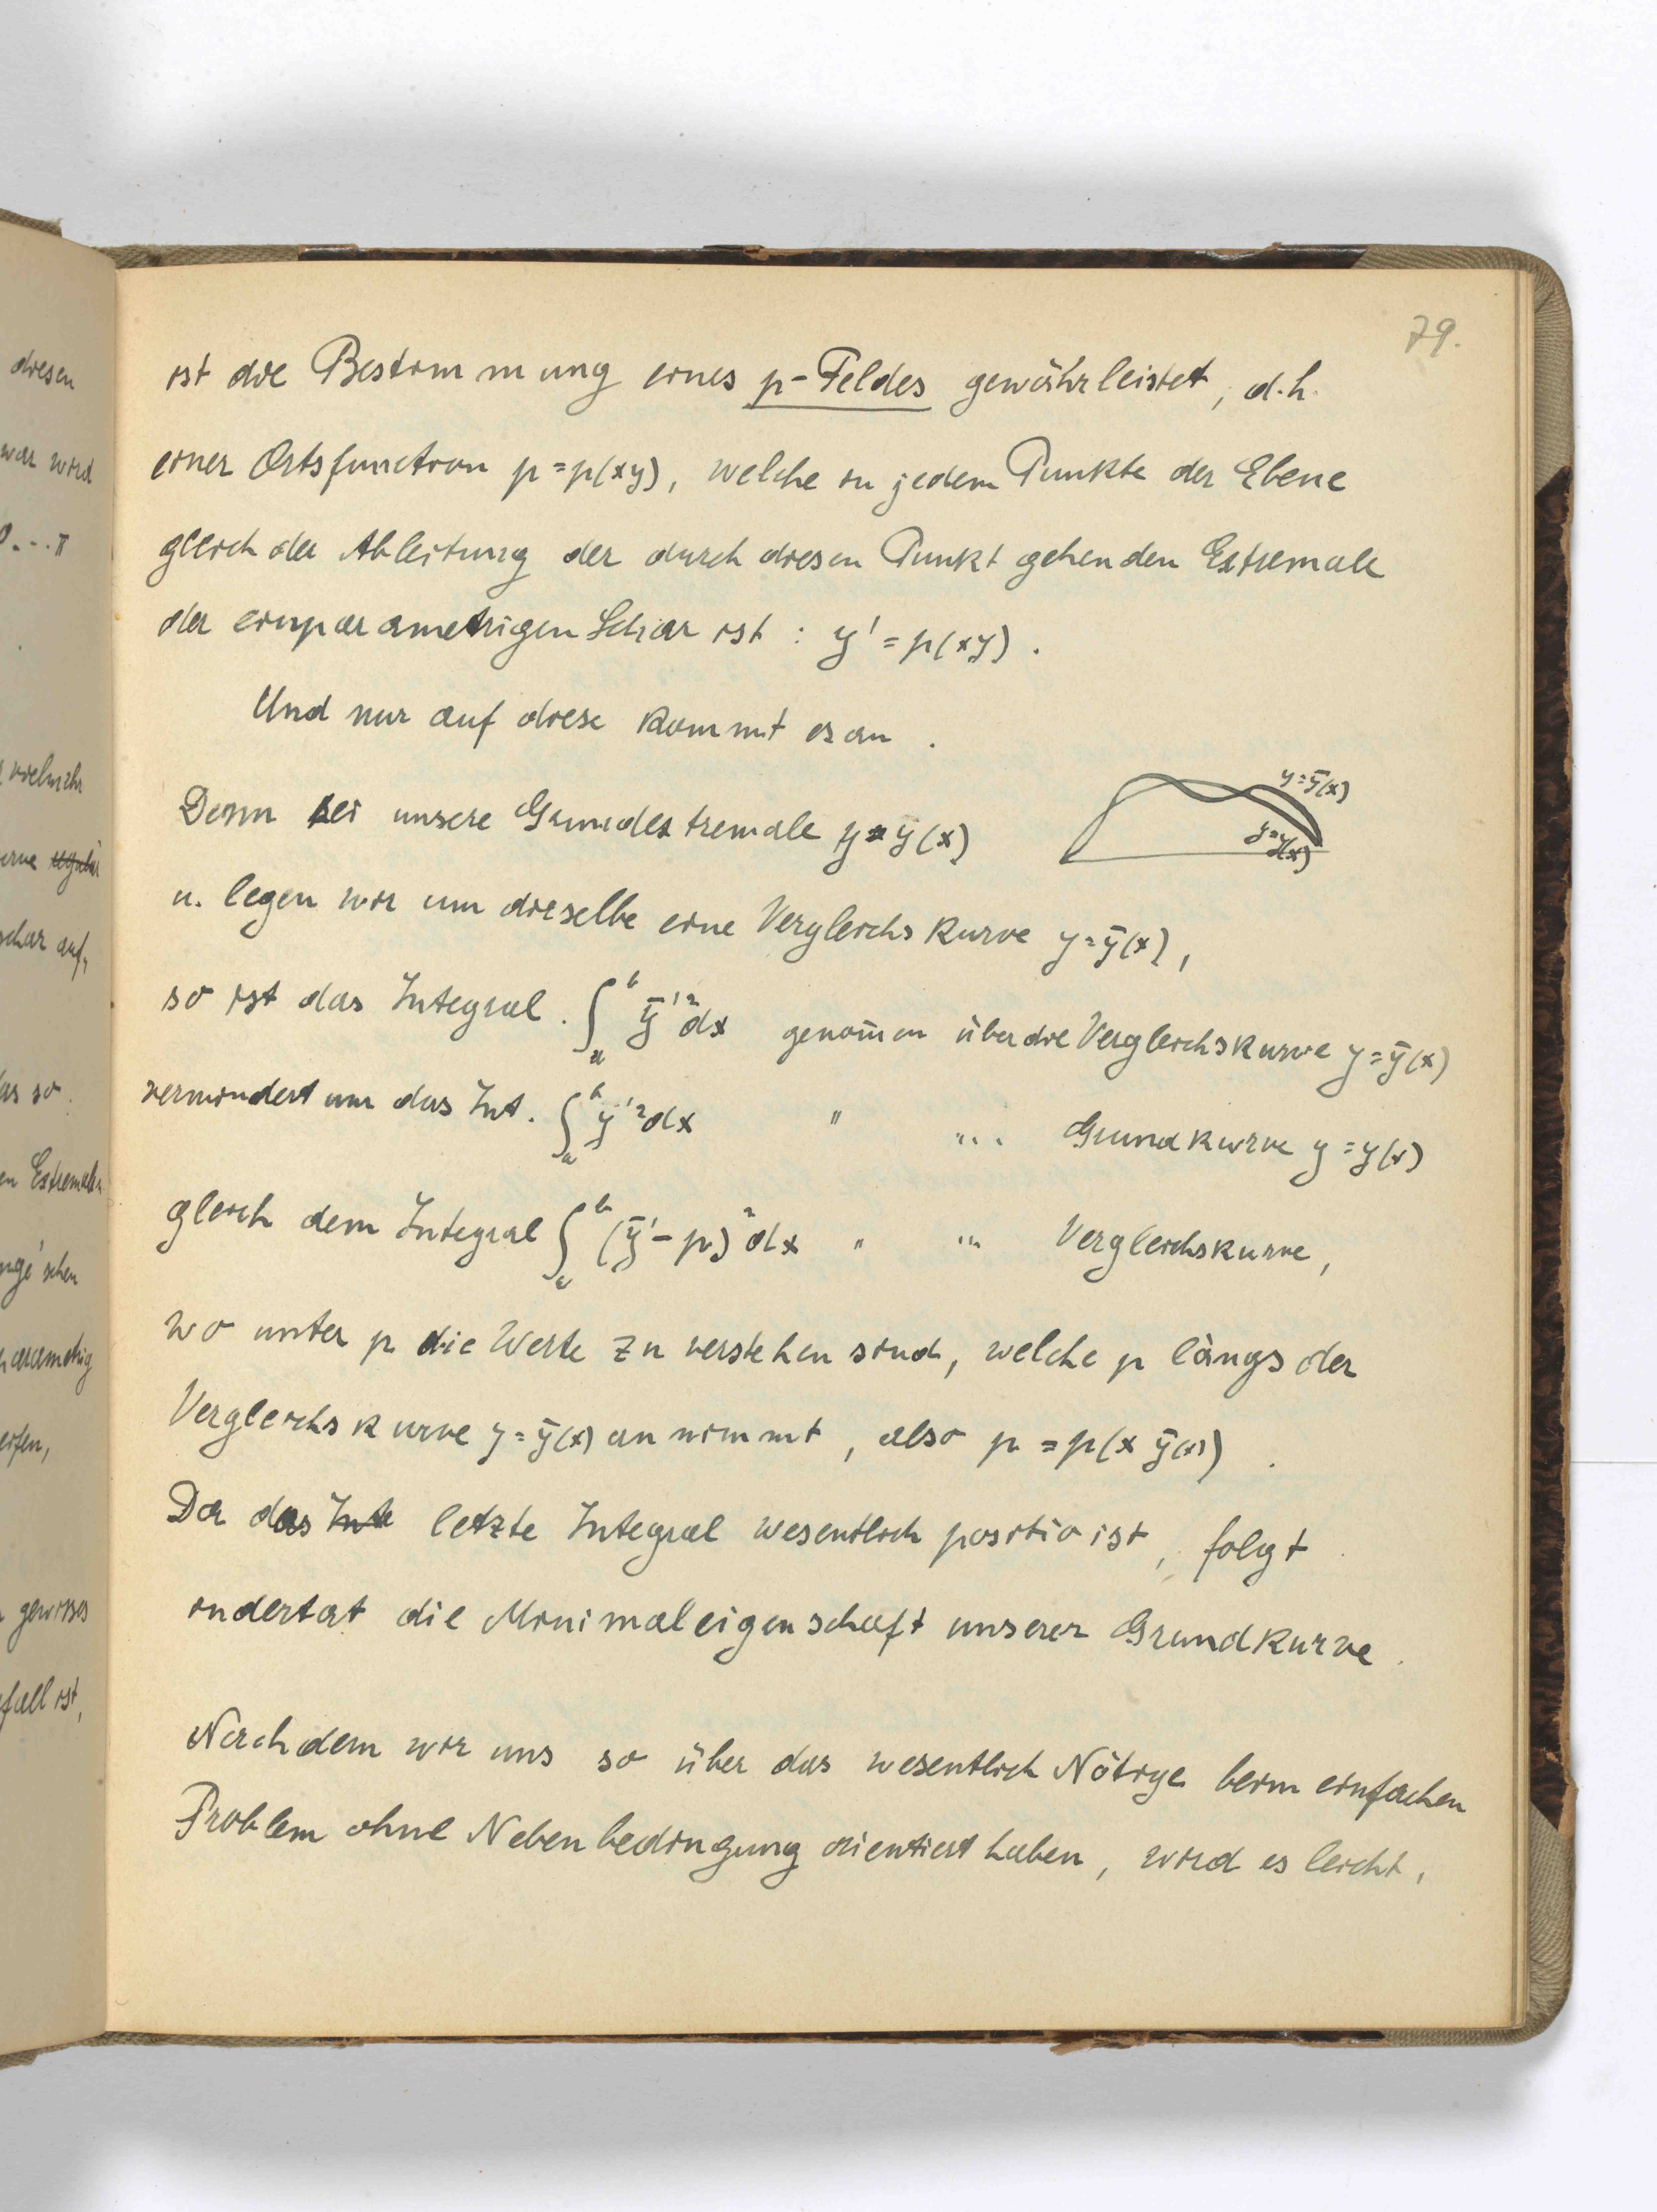 79.
ist die Bestimmung eines p-Feldes gewährleistet, d.h.
einer Ortsfunction p=p(xy), welche in jedem Punkte der Ebene
gleich der Ableitung der durch diesen Punkt gehenden Extremale
der einparametrigen Schar ist : y' = p(xy) .
Und nur auf diese kommt es an .
Denn sei unsere Grundextremale y=y(x)
y=ȳ(x)
y=y(x)
u. legen wir um dieselbe eine Vergleichskurve y=ȳ(x),
so ist das Integral ∫_a^b ȳ'² dx genom̄en über die Vergleichskurve y=ȳ(x)
vermindert um das Int. ∫_a^b y'² dx " " . . Grundkurve y=y(x)
gleich dem Integral ∫_a^b (ȳ'-p)² dx " " " Vergleichskurve,
wo unter p die Werte zu verstehen sind, welche p längs der
Vergleichskurve y=ȳ(x) annimmt, also p = p(x ȳ(x)) .
Da das Inte letzte Integral wesentlich positiv ist, folgt
indertat die Minimaleigenschaft unserer Grundkurve .
Nachdem wir uns so über das wesentlich Nötige beim einfachen
Problem ohne Nebenbedingung orientiert haben, wird es leicht,
diesen
war wird
0...π
vielmehr
regulär
schar auf,
so.
Extremalen
schen
parametrig
gewisses
fall ist,